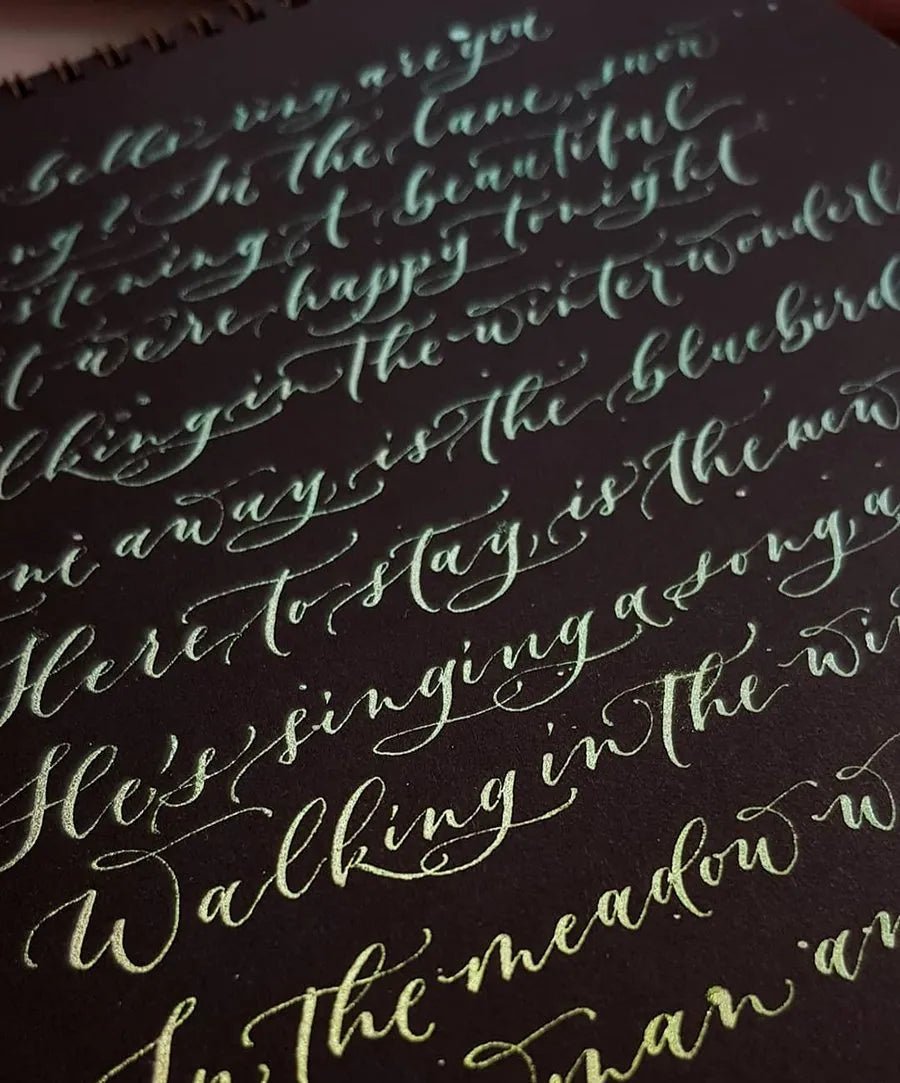 bells ring, are you
ng? In the lane, snow
stening A beautiful
t, we're happy tonight
lking in the winter wonderl
ne away, is the bluebird
Here to stay, is the new
He's singing a song, a
Walking in the win
In the meadow w
man an